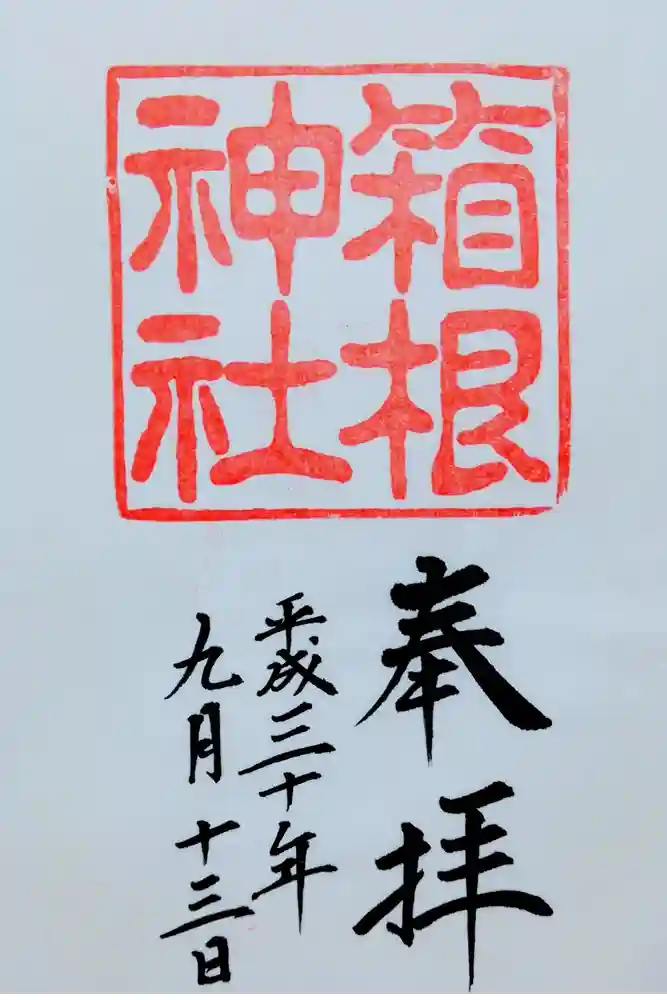 箱根
神社
奉拝
平成三十年
九月十三日